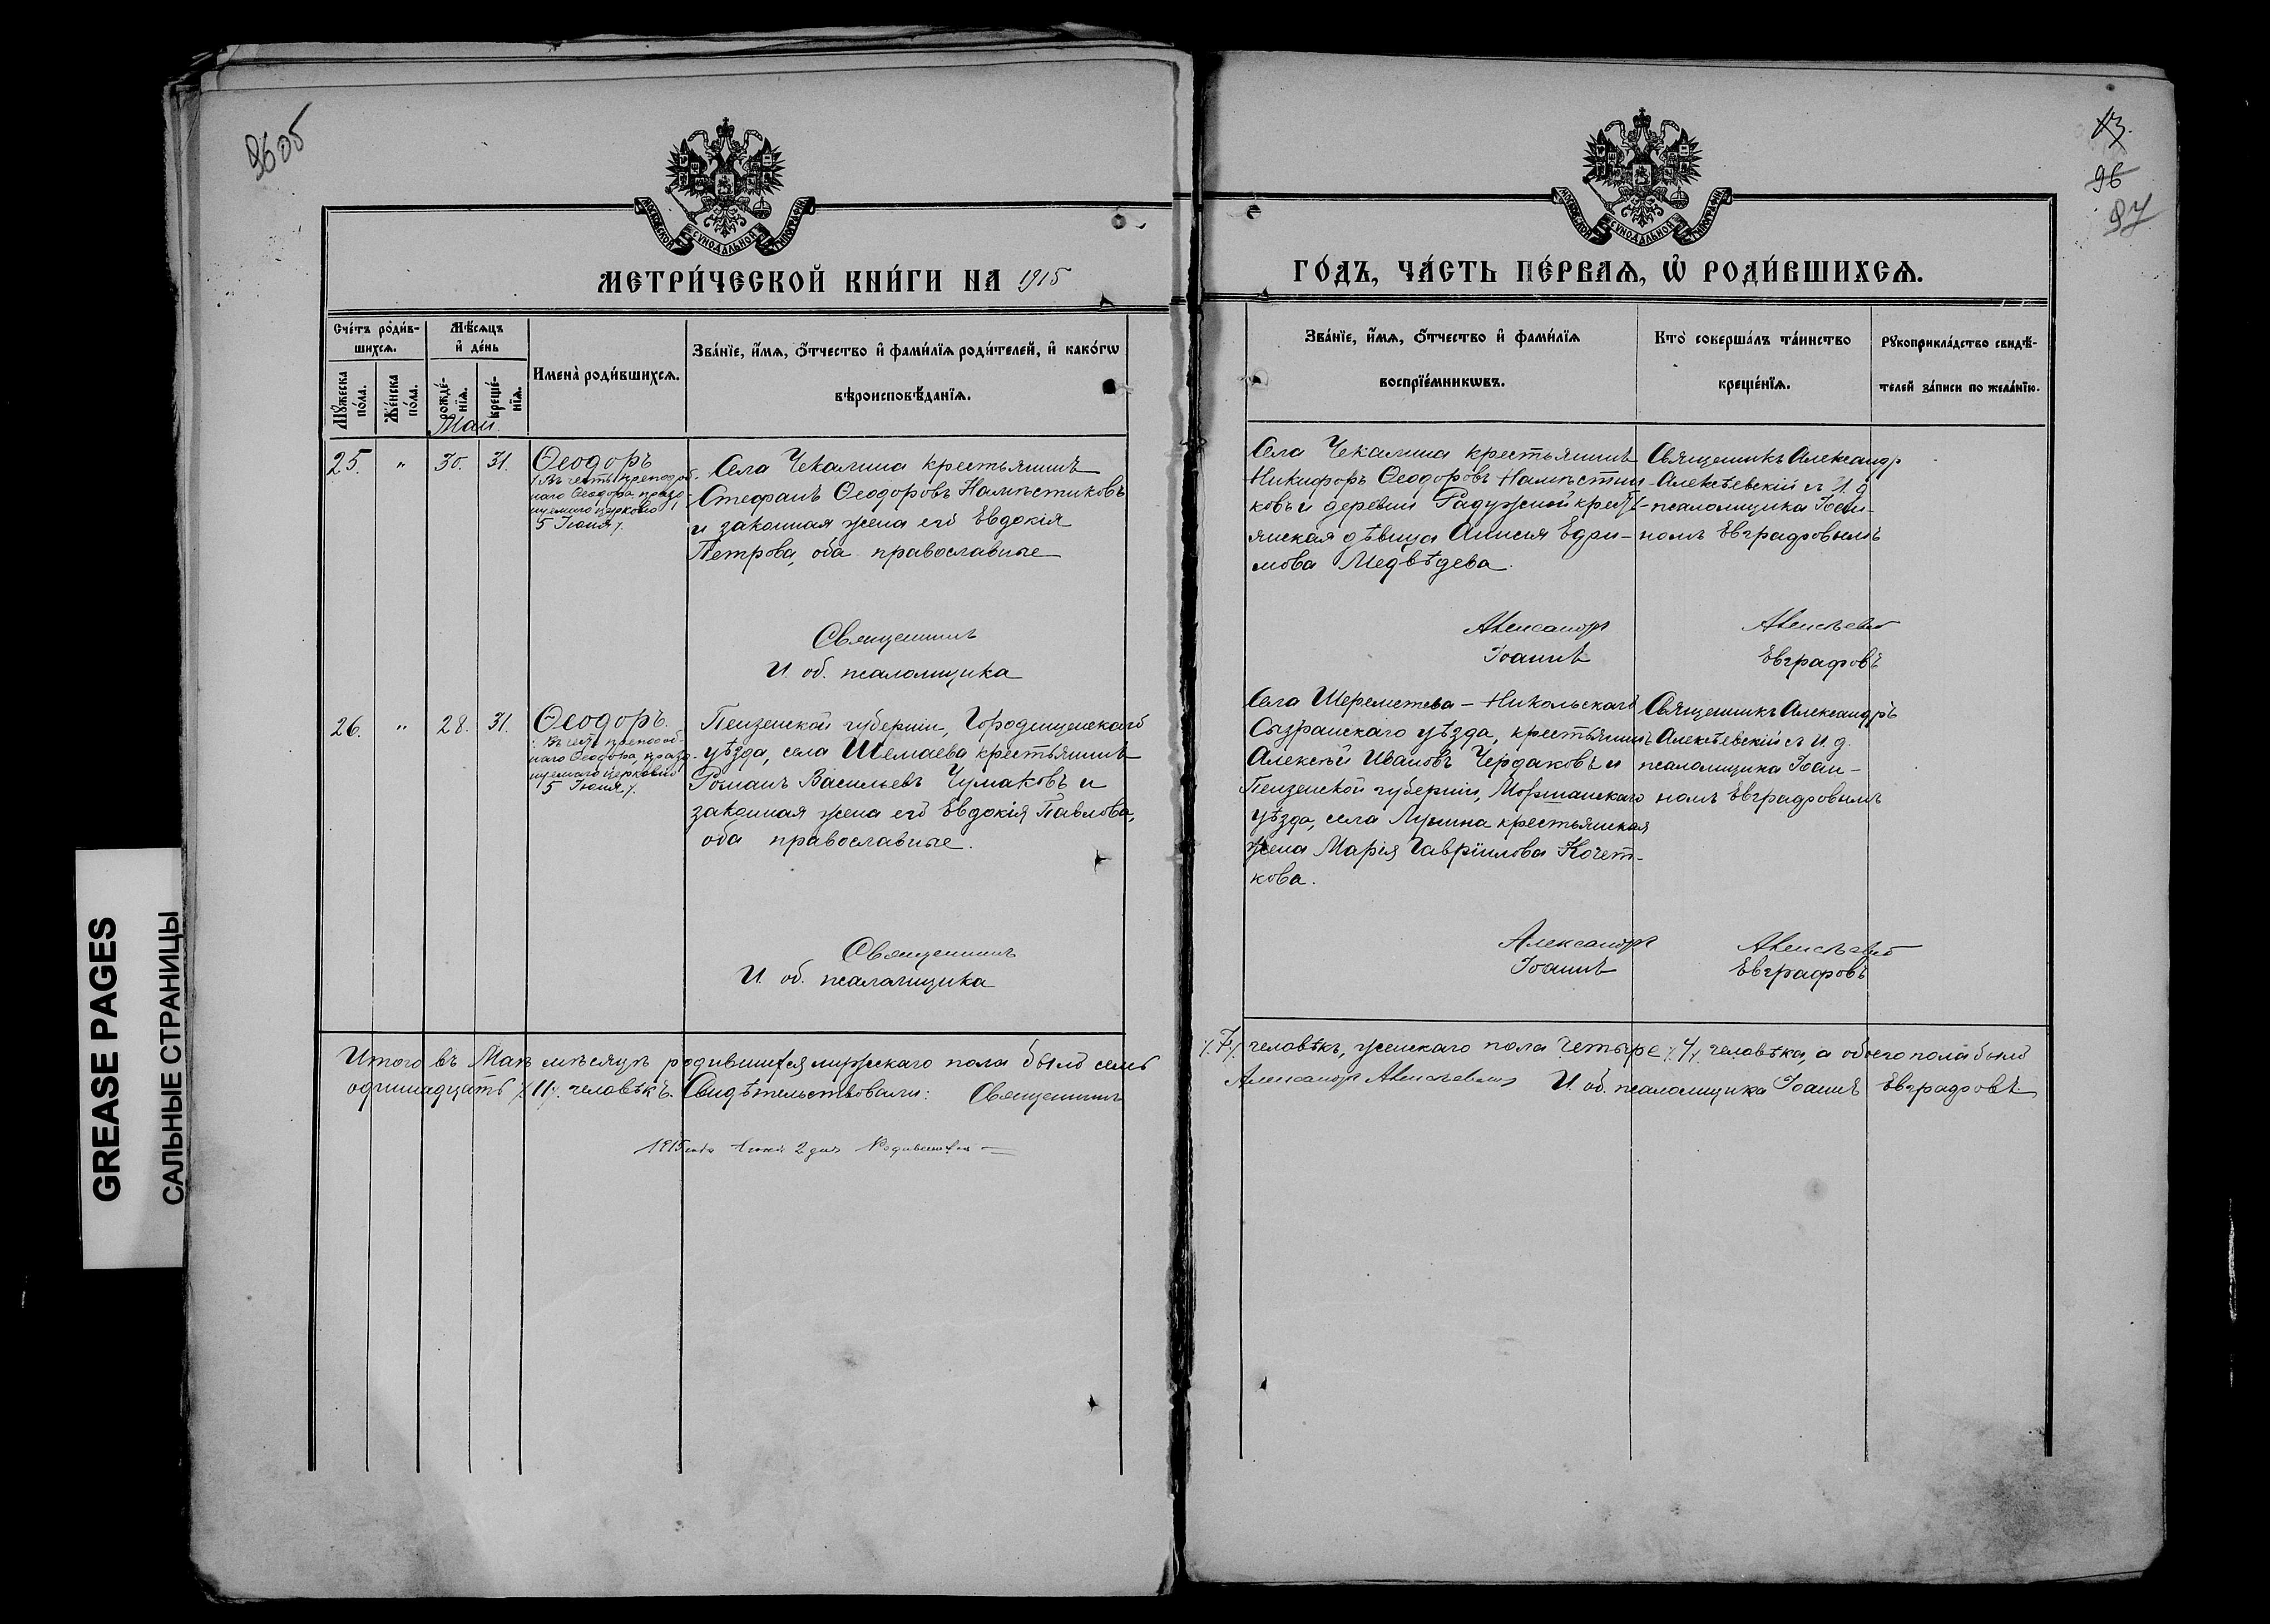 96об
13.
96
97
МОСКОВСКОЙ СѴНОДАЛЬНОЙ ТИПОГРАФІИ
МОСКОВСКОЙ СѴНОДАЛЬНОЙ ТИПОГРАФІИ
МЕТРИ́ЧЕСКОЙ КНИ́ГИ НА 1915
ГО́ДЪ, ЧА́СТЬ ПЕ́РВАѦ, Ѡ҆ РОДИ́ВШИХСѦ.
Сче́тъ роди́в-
шихсѧ.
Мѣ́сѧцъ
и҆ де́нь
Мꙋ́жеска
по́ла.
Же́нска
по́ла.
рожде́-
нїѧ.
креще́-
нїѧ.
Май.
Имена̀ роди́вшихсѧ.
Зва́нїе, и҆́мѧ, ѻ҆́тчество и҆ фами́лїѧ роди́телей, и҆ како́гѡ
вѣроисповѣ́данїѧ.
Зва́нїе, и҆́мѧ, ѻ҆́тчество и҆ фами́лїѧ
воспрїе́мникѡвъ.
Кто̀ соверша́лъ та́инство
креще́нїѧ.
Рꙋкоприкла́дство свидѣ́-
телей за́писи по жела́нїю.
25. " 30. 31. Ѳеодоръ
/. Въ честь преподоб-
наго Ѳеодора, праздн-
уемаго церковію
5 Іюня /.
Села Чекалина крестьянинъ
Стефанъ Ѳеодоровъ Намѣстниковъ
и законная жена его Евдокія
Петрова, оба православные
Священникъ
И. об. псаломщика
Села Чекалина крестьянинъ
Никифоръ Ѳеодоровъ Намѣстни-
ковъ и деревни Радужной кресть-
янская дѣвица Анисія Ефри-
мова Медвѣдева.
Александръ
Іоаннъ
Священникъ Александр
Алексѣевскій съ И. д
псаломщика Іоан-
номъ Евграфовымъ
Алексѣевскій
Евграфовъ
26. " 28. 31. Ѳеодоръ.
/. Въ честь преподоб-
наго Ѳеодора, празд-
нуемаго церковію
5 Іюня /.
Пензенской губерніи, Городищенскаго
уѣзда, села Шемаева крестьянинъ
Романъ Васильевъ Чумаковъ и
законная жена его Евдокія Павлова,
оба православные.
Священникъ
И. об. псаломщика
Села Шереметева-Никольскаго
Сызранскаго уѣзда, крестьянинъ
Алексѣй Ивановъ Чердаковъ и
Пензенской губерніи, Моршанскаго
уѣзда, села Лунина крестьянская
жена Марія Гавріилова Кочет-
кова.
Александръ
Іоаннъ
Священникъ Александръ
Алексѣевскій съ И. д.
псаломщика Іоан-
номъ Евграфовымъ
Алексѣевскій
Евграфовъ
Итого въ Маѣ мѣсяцѣ родившихся мужскаго пола было семь /. 7 /. человѣкъ, женскаго пола четыре /. 4 /. человѣка, а обоего пола было
одиннадцать /. 11 /. человѣкъ. Свидѣтельствовали: Священникъ Александръ Алексѣевскій И. об. псаломщика Іоаннъ Евграфовъ.
1915 года Іюня 2 дня
GREASE PAGES
САЛЬНЫЕ СТРАНИЦЫ